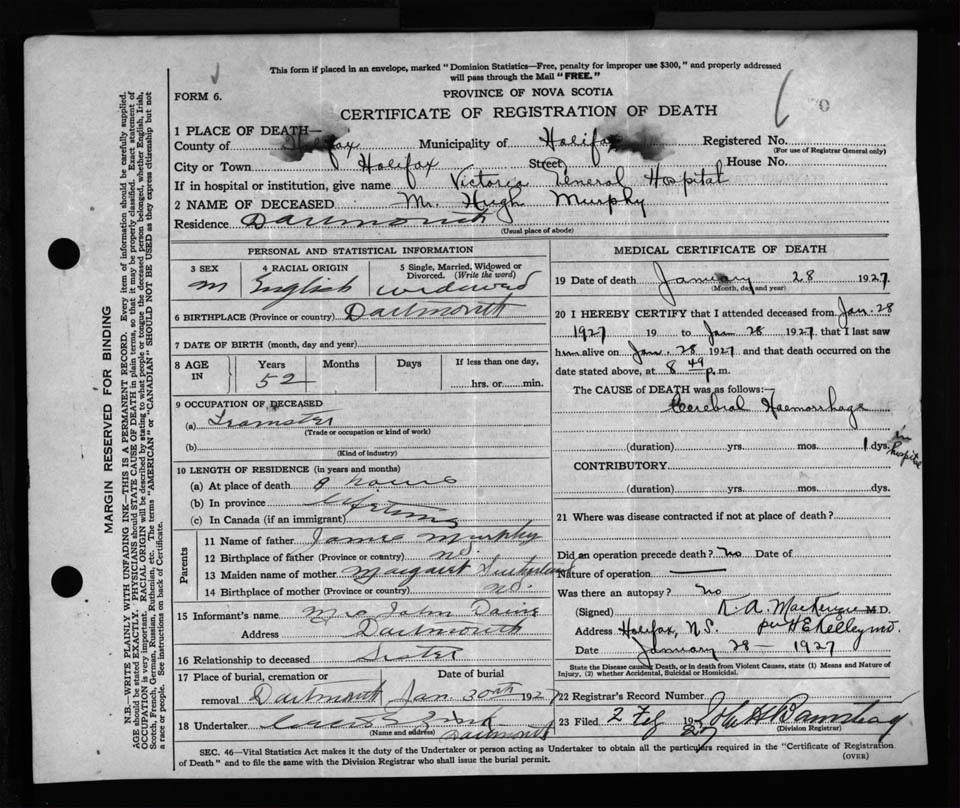 This form if placed in an envelope, marked "Dominion Statistics—Free, penalty for improper use $300," and properly addressed
will pass through the Mail "FREE."
FORM 6.
PROVINCE OF NOVA SCOTIA
CERTIFICATE OF REGISTRATION OF DEATH
1 PLACE OF DEATH—
County of Halifax Municipality of Halifax Registered No.
(For use of Registrar General only)
City or Town Halifax Street House No.
If in hospital or institution, give name Victoria General Hospital
2 NAME OF DECEASED Mr. Hugh Murphy
Residence Dartmouth
(Usual place of abode)
MARGIN RESERVED FOR BINDING
N.B.—WRITE PLAINLY WITH UNFADING INK—THIS IS A PERMANENT RECORD. Every item of information should be carefully supplied.
AGE should be stated EXACTLY. PHYSICIANS should STATE CAUSE OF DEATH in plain terms, so that it may be properly classified. Exact statement of
OCCUPATION is very important. RACIAL ORIGIN will be described by stating to what people or tongue the deceased person belonged, whether English, Irish,
Scotch, French, German, Russian, Ruthenian, etc. The terms "AMERICAN" or "CANADIAN" SHOULD NOT BE USED as they express citizenship but not
a race or people. See instructions on back of Certificate.
PERSONAL AND STATISTICAL INFORMATION
3 SEX 4 RACIAL ORIGIN 5 Single, Married, Widowed or
Divorced. (Write the word)
M English widowed
6 BIRTHPLACE (Province or country) Dartmouth
7 DATE OF BIRTH (month, day and year)
8 AGE IN Years Months Days If less than one day,
52 hrs. or min.
9 OCCUPATION OF DECEASED
(a) Teamster
(Trade or occupation or kind of work)
(b)
(Kind of industry)
10 LENGTH OF RESIDENCE (in years and months)
(a) At place of death 9 hours
(b) In province Lifetime
(c) In Canada (if an immigrant)
Parents
11 Name of father James Murphy
12 Birthplace of father (Province or country) N.S.
13 Maiden name of mother Margaret Sutherland
14 Birthplace of mother (Province or country) N.S.
15 Informant's name Mrs John
Address Dartmouth
16 Relationship to deceased Sister
17 Place of burial, cremation or Date of burial
removal Dartmouth Jan. 30th 1927
18 Undertaker
(Name and address) Dartmouth
MEDICAL CERTIFICATE OF DEATH
19 Date of death January 28 1927
(Month, day and year)
20 I HEREBY CERTIFY that I attended deceased from Jan. 28
1927 19 to Jan 28 1927, that I last saw
him alive on Jan. 28 1927 and that death occurred on the
date stated above, at 8 49 p.m.
The CAUSE of DEATH was as follows:—
Cerebral Haemorrhage
(duration) yrs. mos. 1 dys. in hospital
CONTRIBUTORY
(duration) yrs. mos. dys.
21 Where was disease contracted if not at place of death?
Did an operation precede death? No Date of
Nature of operation —
Was there an autopsy? No
(Signed) K. A. MacKenzie M.D.
Address Halifax, N.S. per H E Kelley M.D.
Date January 28 — 1927
State the Disease causing Death, or in death from Violent Causes, state (1) Means and Nature of
Injury, (2) whether Accidental, Suicidal or Homicidal.
22 Registrar's Record Number
23 Filed 2 Feb 1927
(Division Registrar)
SEC. 46—Vital Statistics Act makes it the duty of the Undertaker or person acting as Undertaker to obtain all the particulars required in the "Certificate of Registration
of Death" and to file the same with the Division Registrar who shall issue the burial permit.
(OVER)